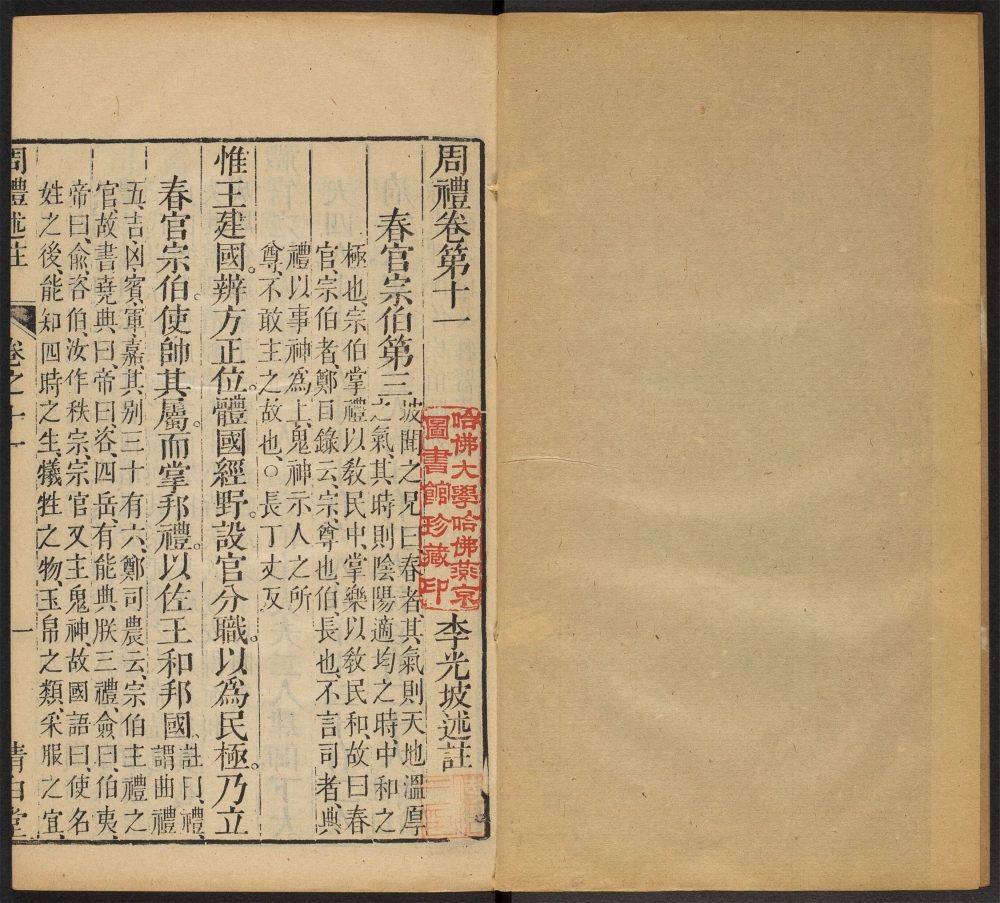 周禮卷第十一
李光坡述註
哈佛大學哈佛燕京
圖書館珍藏印
春官宗伯第三
坡聞之兄曰春者、其氣則天地溫厚
之氣、其時則陰陽適均之時、中和之
極也、宗伯掌禮以敎民中、掌樂以敎民和、故曰春
官、宗伯者、鄭目錄云、宗尊也、伯、長也、不言司者、典
禮以事神爲上、鬼神示人之所
尊、不敢主之故也。○長丁丈反
惟王建國。辨方正位。體國經野。設官分職。以爲民極。乃立
春官宗伯。使帥其屬。而掌邦禮。以佐王和邦國。
註曰、禮、
謂曲禮
五、吉、凶、賓、軍、嘉、其別三十有六、鄭司農云、宗伯主禮之
官、故書堯典曰、帝曰、咨、四岳、有能典朕三禮、僉曰、伯夷、
帝曰、俞、咨伯、汝作秩宗、宗官又主鬼神、故國語曰、使名
姓之後、能知四時之生、犧牲之物、玉帛之類、采服之宜、
周禮述註
卷之十一
一
清白堂